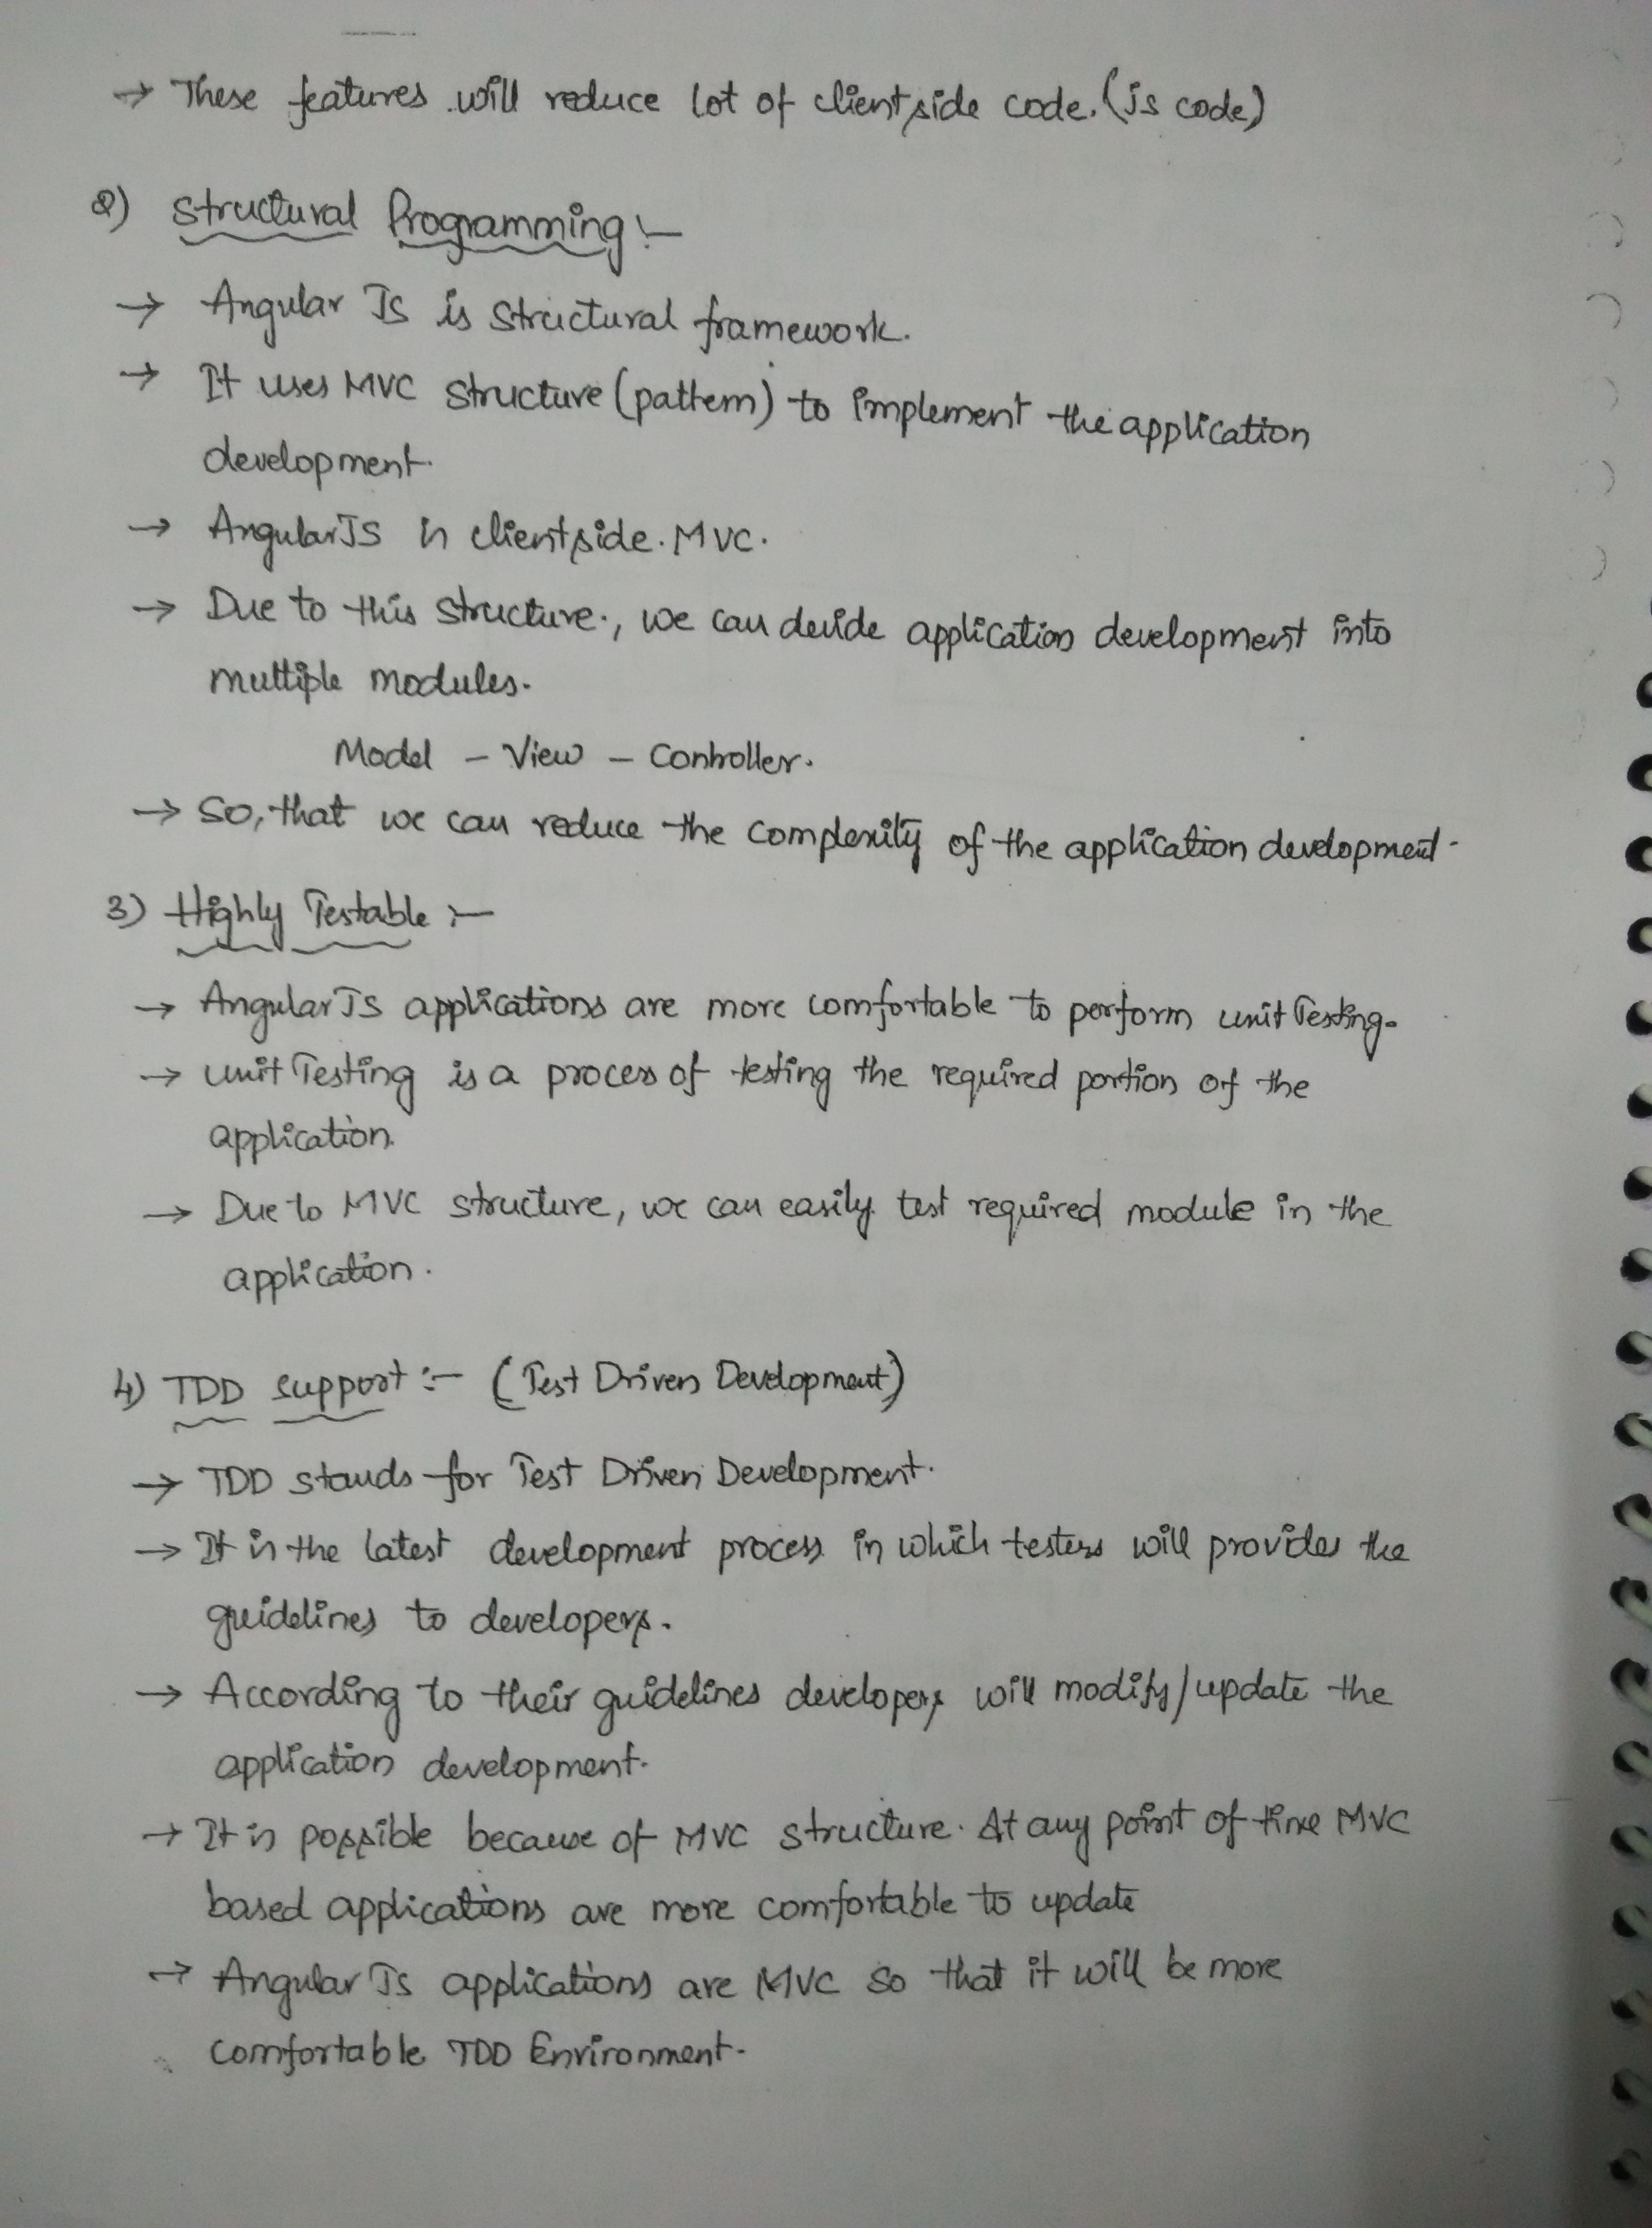 → These features will reduce lot of clientside code. (js code)
2) Structural Programming :-
→ Angular JS is structural framework.
→ It uses MVC structure (pattern) to implement the application
development.
→ AngularJS is clientside. MVC.
→ Due to this structure, we can devide application development into
multiple modules.
Model - View - Controller.
→ So, that we can reduce the complexity of the application development.
3) Highly Testable :-
→ AngularJS applications are more comfortable to perform unit Testing.
→ unit Testing is a process of testing the required portion of the
application.
→ Due to MVC structure, we can easily test required module in the
application.
4) TDD support :- (Test Driven Development)
→ TDD stands for Test Driven Development.
→ It is the latest development process in which testers will provides the
guidelines to developers.
→ According to their guidelines developers will modify/update the
application development.
→ It is possible because of MVC structure. At any point of time MVC
based applications are more comfortable to update
→ Angular Js applications are MVC so that it will be more
comfortable TDD Environment.